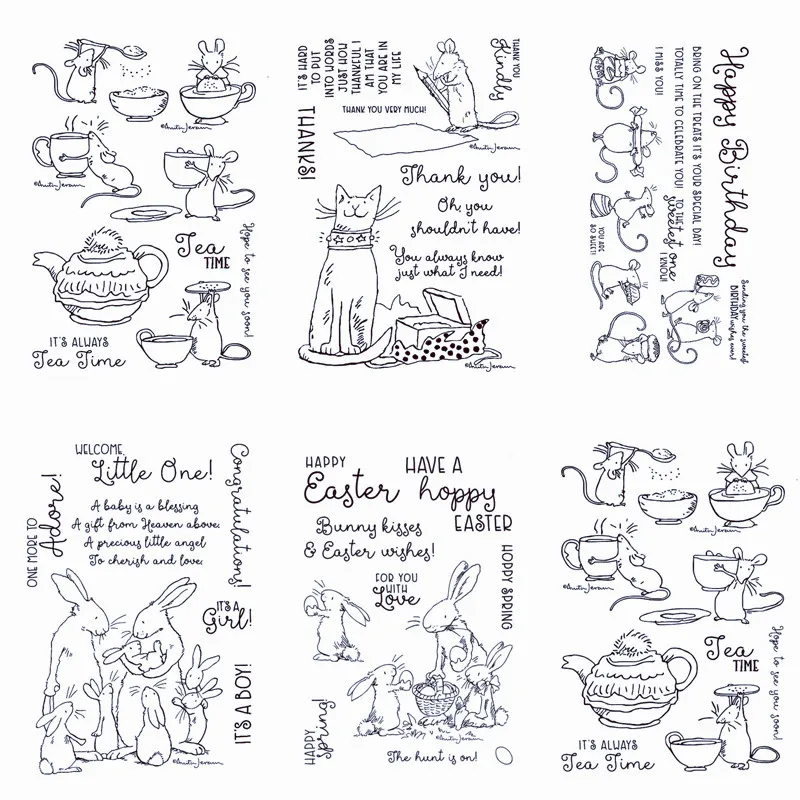 ©Anita Jeram
©Anita Jeram
Tea
TIME
Hope to see you soon!
IT'S ALWAYS
Tea Time
IT'S HARD
TO PUT
INTO WORDS
JUST HOW
THANKFUL I
AM THAT
YOU ARE IN
MY LIFE
THANK YOU
Kindly
THANK YOU VERY MUCH!
THANKS!
©Anita Jeram
Thank you!
Oh, you
shouldn't have!
You always know
just what I need!
©Anita Jeram
Happy Birthday
BRING ON THE TREATS IT'S YOUR SPECIAL DAY!
TOTALLY TIME TO CELEBRATE YOU!
TO THE
sweetest one
I KNOW!
I MISS YOU!
YOU ARE
SO SWEET!
Sending you the sweetest
BIRTHDAY
wishes ever!
WELCOME,
Little One!
Congratulations!
ONE MORE TO
Adore!
A baby is a blessing
A gift from Heaven above.
A precious little angel
To cherish and love.
IT'S A
Girl!
IT'S A BOY!
©Anita Jeram
HAPPY
Easter
HAVE A
hoppy
EASTER
Bunny kisses
& Easter wishes!
FOR YOU
WITH
Love
HOPPY SPRING
HAPPY
Spring!
©Anita Jeram
The hunt is on!
©Anita Jeram
©Anita Jeram
Tea
TIME
Hope to see you soon!
IT'S ALWAYS
Tea Time